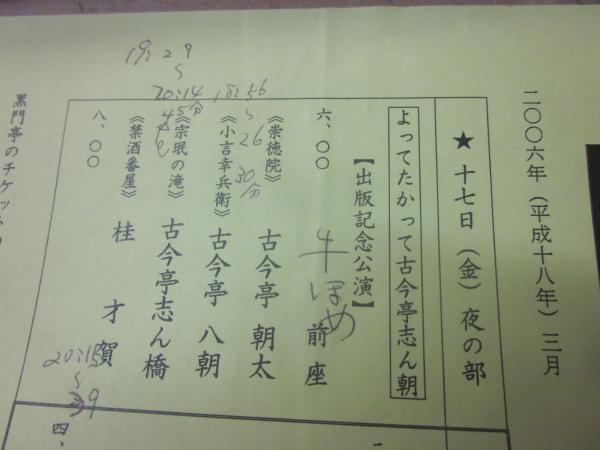 二〇〇六年（平成十八年）三月
★ 十七日（金）夜の部
よってたかって古今亭志ん朝
【出版記念公演】
六、〇〇 前座
牛ほめ
《崇徳院》 古今亭 朝太
《小言幸兵衛》 古今亭 八朝
18:56
〜
26
30分
《宗珉の滝》 古今亭志ん橋
19:29
〜
20:14
45分
《禁酒番屋》 桂 才賀
20:15
〜
八、〇〇
四、
黒門亭のチケット